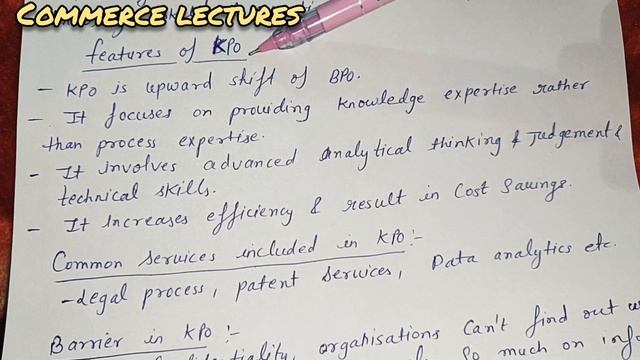 COMMERCE LECTURES
features of KPO
- KPO is upward shift of BPO.
- It focuses on providing knowledge expertise rather
than process expertise.
- It involves advanced analytical thinking & Judgement &
technical skills.
- It increases efficiency & result in Cost Savings.
Common services included in KPO:-
- Legal process, patent services, Data analytics etc.
Barrier in KPO:-
organisations can't find out
So much on